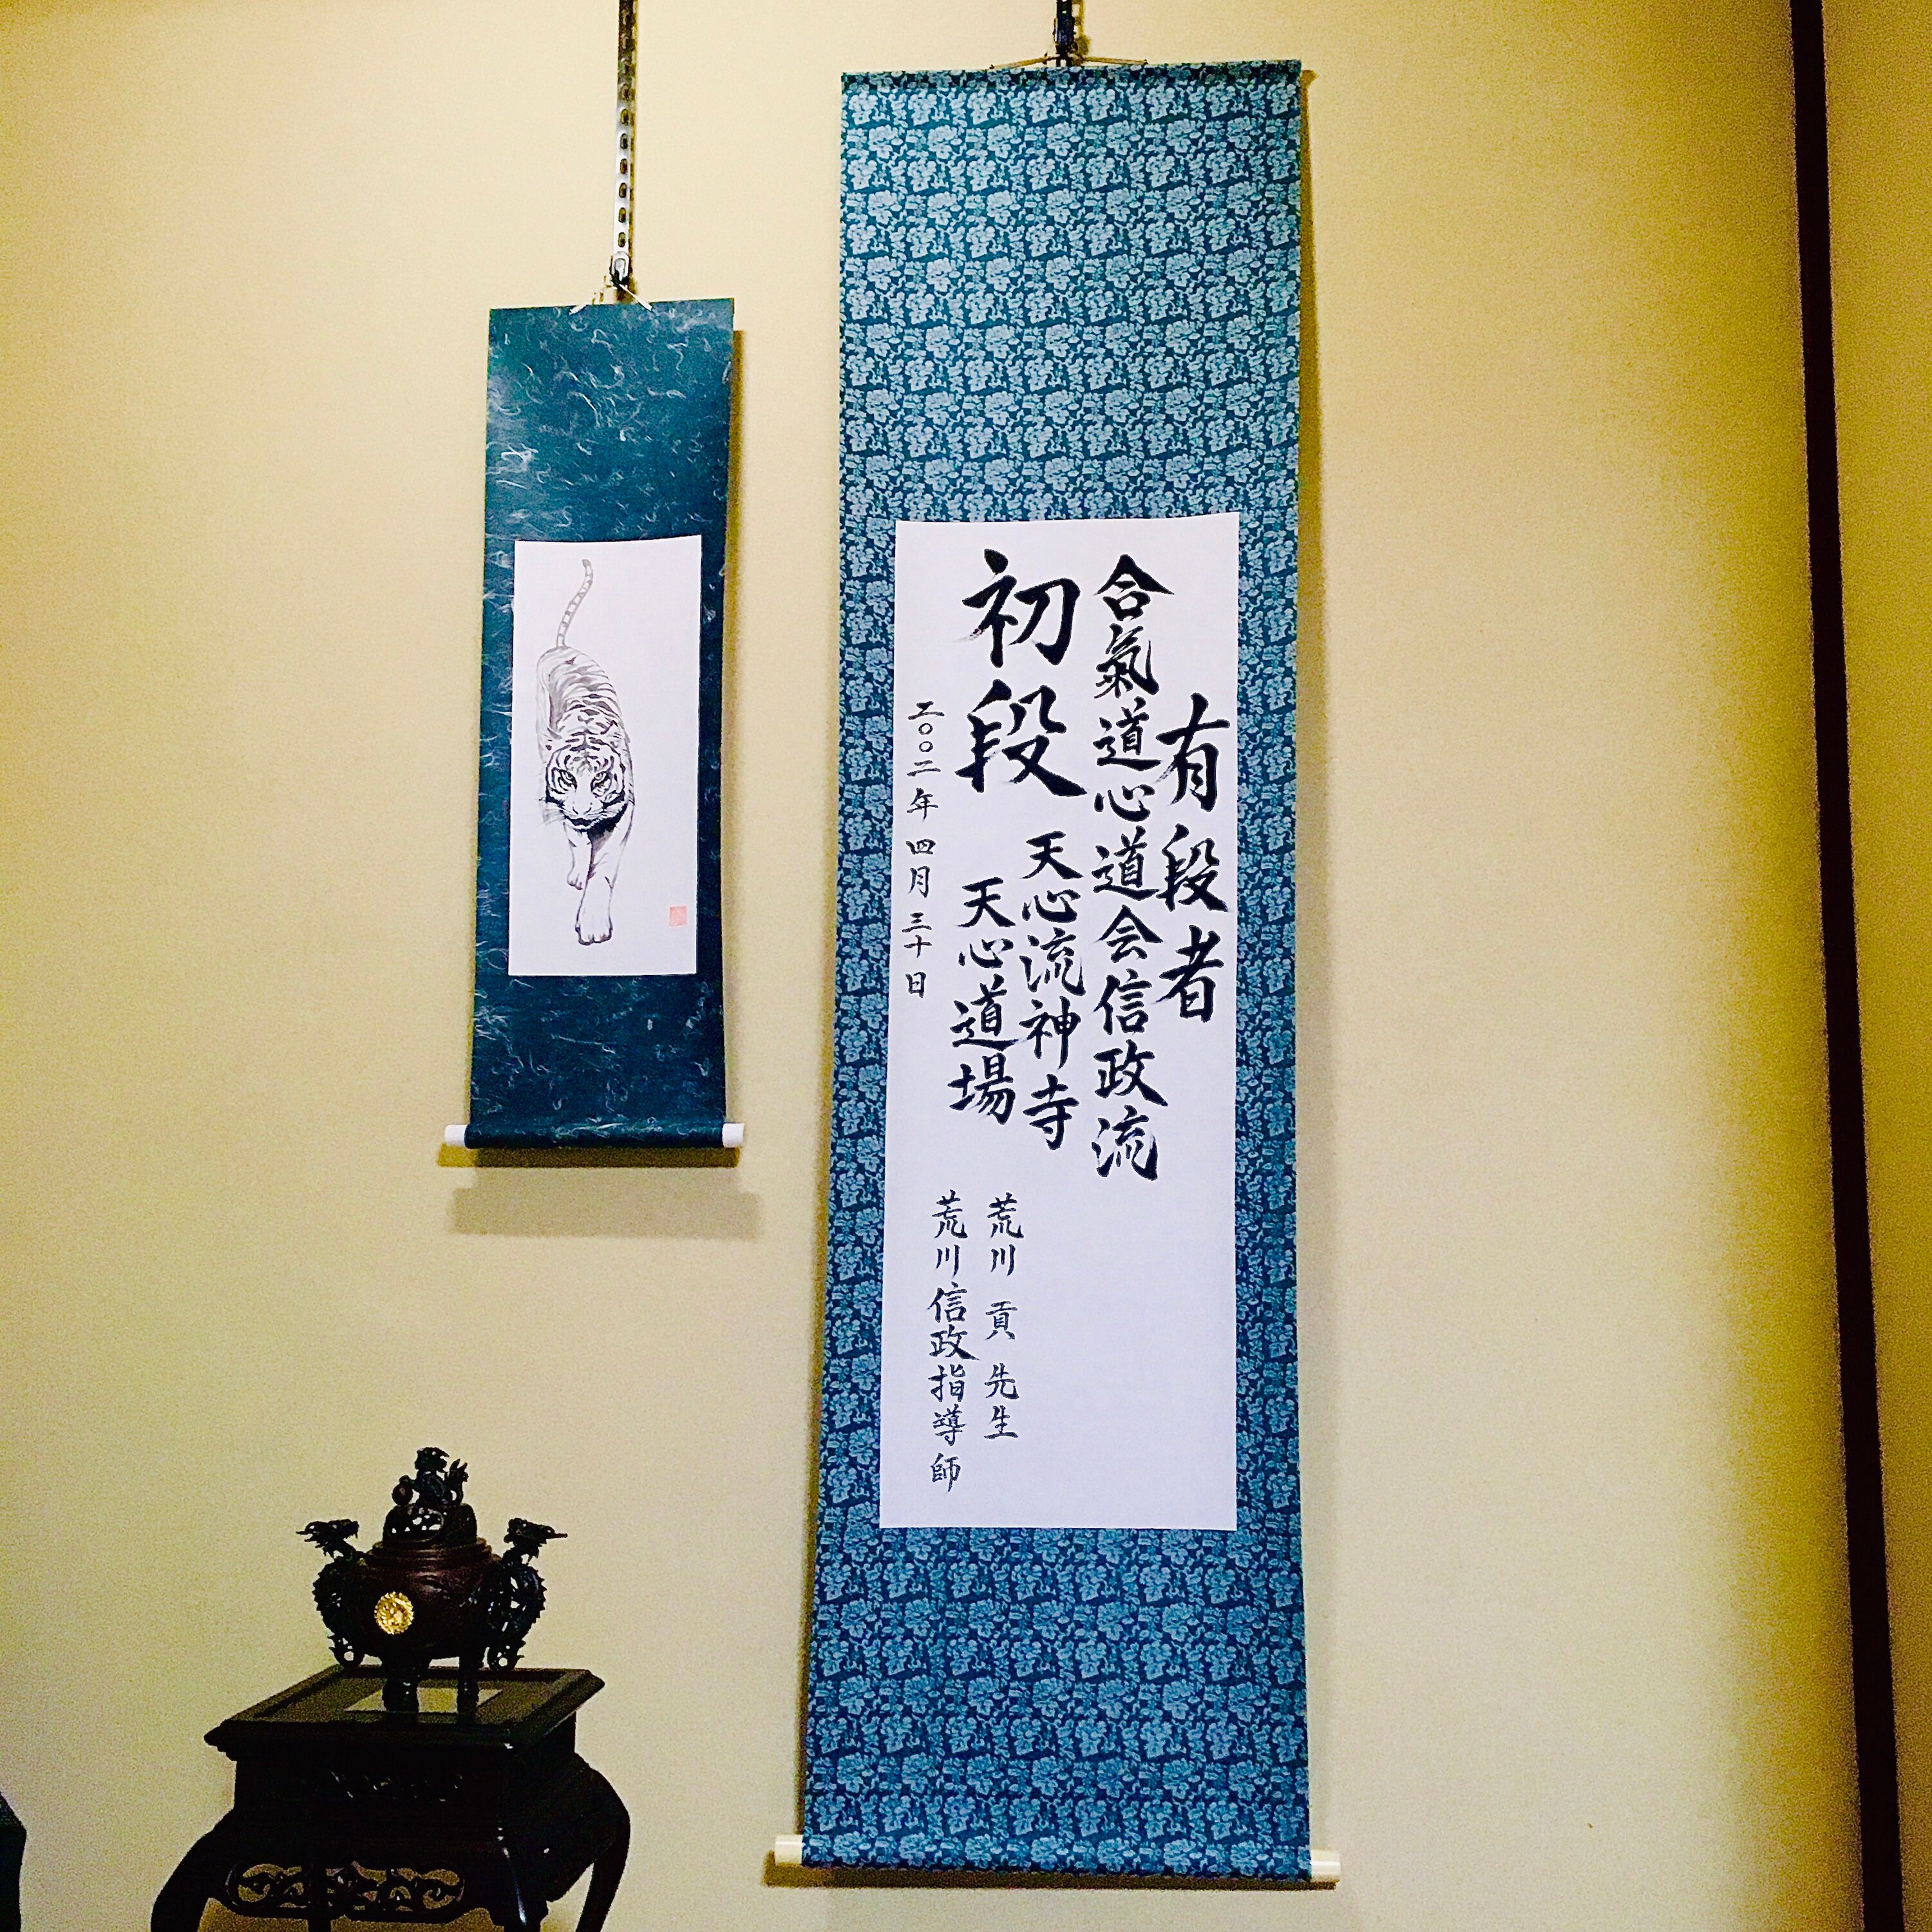 有段者
合氣道心道会信政流
初段
天心流神寺
天心道場
荒川 貢 先生
荒川信政指導師
二〇〇二年 四月 三十日